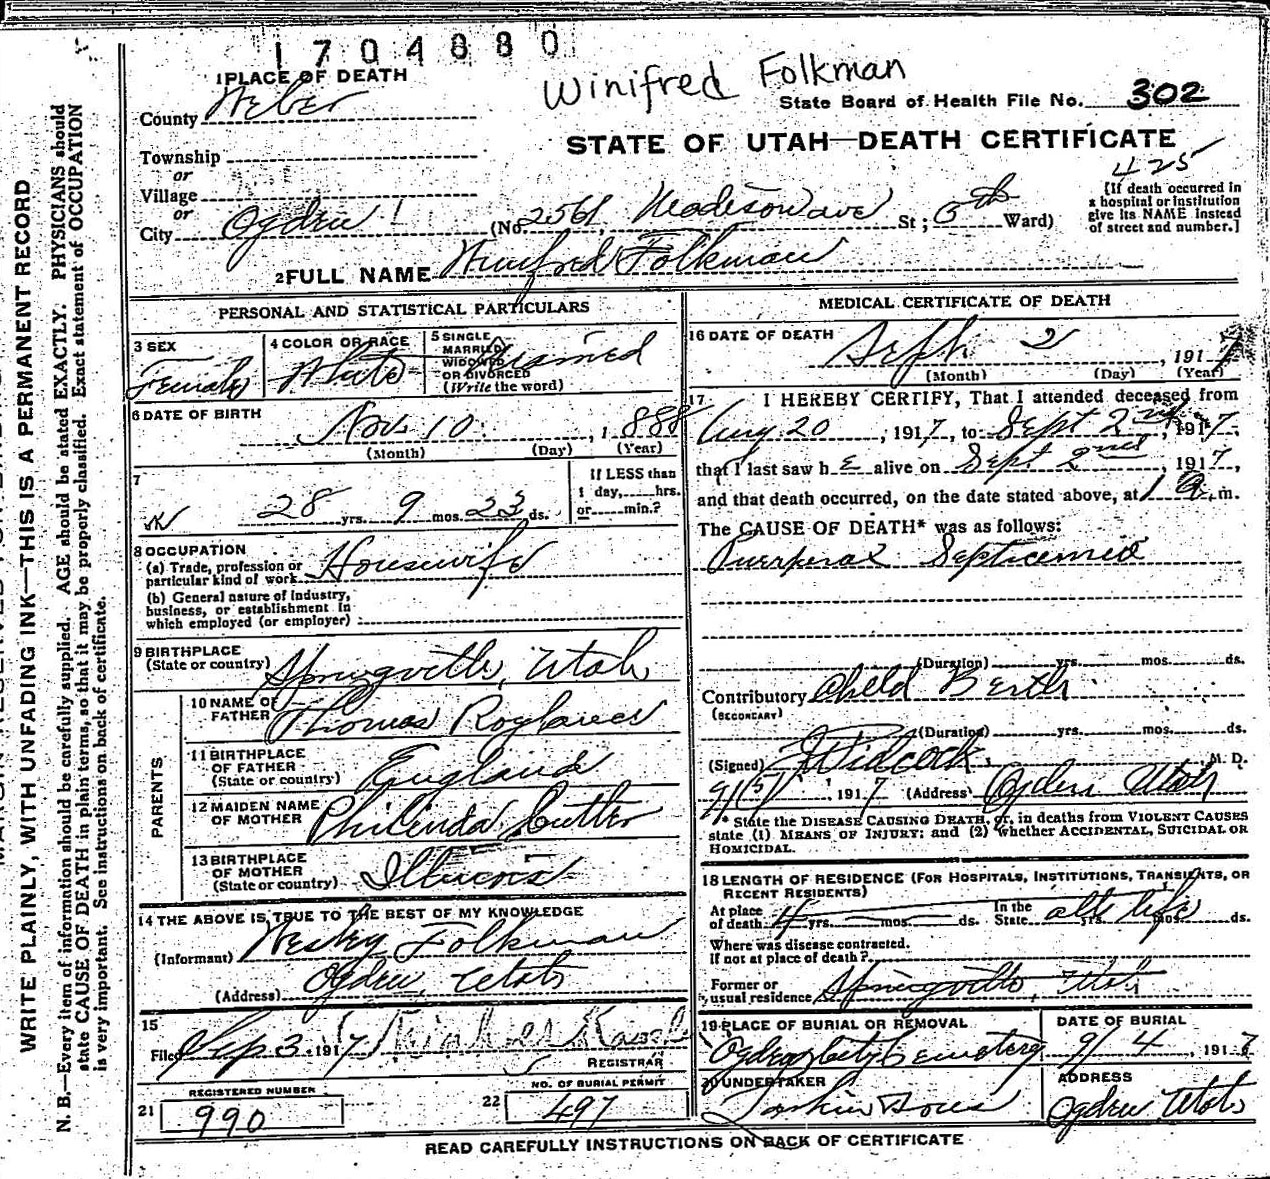 1704880
Winifred Folkman
1 PLACE OF DEATH
County Weber
State Board of Health File No. 302
STATE OF UTAH—DEATH CERTIFICATE
Township
or
Village
or
City Ogden
425
(No. 2561 Madison ave St; 5th Ward)
[If death occurred in
a hospital or institution
give its NAME instead
of street and number.]
2 FULL NAME Winifred Folkman
PERSONAL AND STATISTICAL PARTICULARS
3 SEX Female
4 COLOR OR RACE White
5 SINGLE
MARRIED
WIDOWED
OR DIVORCED
(Write the word)
Married
6 DATE OF BIRTH
Nov. 10, 1888
(Month) (Day) (Year)
7
28 yrs. 9 mos. 23 ds.
If LESS than
1 day, hrs.
or min.?
8 OCCUPATION
(a) Trade, profession or
particular kind of work Housewife
(b) General nature of industry,
business, or establishment in
which employed (or employer)
9 BIRTHPLACE
(State or country) Springville, Utah
PARENTS
10 NAME OF
FATHER Thomas
11 BIRTHPLACE
OF FATHER
(State or country) England
12 MAIDEN NAME
OF MOTHER Philinda Cutler
13 BIRTHPLACE
OF MOTHER
(State or country) Illinois
14 THE ABOVE IS TRUE TO THE BEST OF MY KNOWLEDGE
(Informant) Wesley Folkman
(Address) Ogden, Utah
15
Filed Sep 3 1917
REGISTRAR
REGISTERED NUMBER
21 990
NO. OF BURIAL PERMIT
22 497
MEDICAL CERTIFICATE OF DEATH
16 DATE OF DEATH
Sept. 2, 1917
(Month) (Day) (Year)
17 I HEREBY CERTIFY, That I attended deceased from
Aug 20, 1917, to Sept 2nd, 1917,
that I last saw h e alive on Sept 2nd, 1917,
and that death occurred, on the date stated above, at 1 a. m.
The CAUSE OF DEATH* was as follows:
Puerperal Septicemia
(Duration) yrs. mos. ds.
Contributory Child Berth
(SECONDARY)
(Duration) yrs. mos. ds.
(Signed) Pidcock, M. D.
9/5/, 1917 (Address) Ogden Utah
* State the DISEASE CAUSING DEATH, or, in deaths from VIOLENT CAUSES
state (1) MEANS OF INJURY; and (2) whether ACCIDENTAL, SUICIDAL OR
HOMICIDAL.
18 LENGTH OF RESIDENCE (FOR HOSPITALS, INSTITUTIONS, TRANSIENTS, OR
RECENT RESIDENTS)
At place
of death 4 yrs. mos. ds.
In the
State all life yrs. mos. ds.
Where was disease contracted.
If not at place of death?
Former or
usual residence Springville, Utah
19 PLACE OF BURIAL OR REMOVAL
Ogden City Cemetery
DATE OF BURIAL
9/4, 1917
20 UNDERTAKER
Larkin Sons
ADDRESS
Ogden Utah
READ CAREFULLY INSTRUCTIONS ON BACK OF CERTIFICATE
WRITE PLAINLY, WITH UNFADING INK—THIS IS A PERMANENT RECORD
N. B.—Every item of information should be carefully supplied. AGE should be stated EXACTLY. PHYSICIANS should
state CAUSE OF DEATH in plain terms, so that it may be properly classified. Exact statement of OCCUPATION
is very important. See instructions on back of certificate.